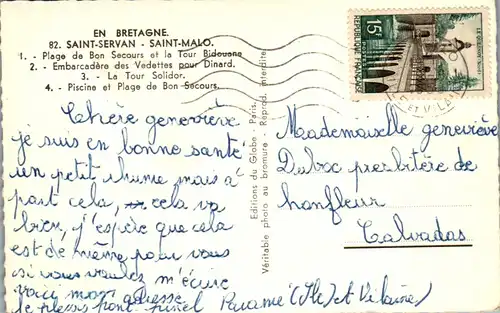 EN BRETAGNE.
82. SAINT-SERVAN - SAINT-MALO.
1. - Plage de Bon Secours et la Tour Bidouane
2. - Embarcadère des Vedettes pour Dinard.
3. - La Tour Solidor.
4. - Piscine et Plage de Bon-Secours.
Chère geneviève
je suis en bonne santé
un petit rhume mais à
part cela, cela va
bien, j'espère que cela
est de même pour vous
si vous voulez m'écrire
voici mon adresse
le plessis pont pinel Paramé (Ille et Vilaine)
Editions du Globe - Paris.
Véritable photo au bromure - Reprod. interdite
15F
REPUBLIQUE FRANÇAISE
LE QUESNOY
Mademoiselle geneviève
Duboc presbitère de
honfleur
Calvados